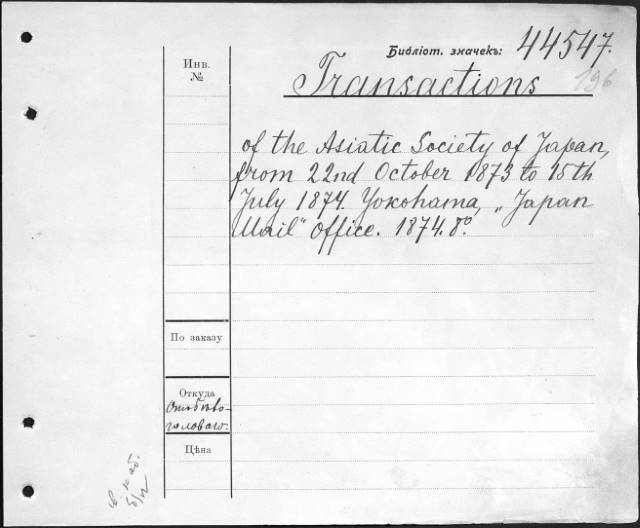 Библіот. значекъ: 44547.
196
Инв.
№
Transactions
of the Asiatic Society of Japan,
from 22nd October 1873 to 15th
July 1874. Yokohama, „Japan
Mail" Office. 1874. 8º.
По заказу
Откуда
Цѣна